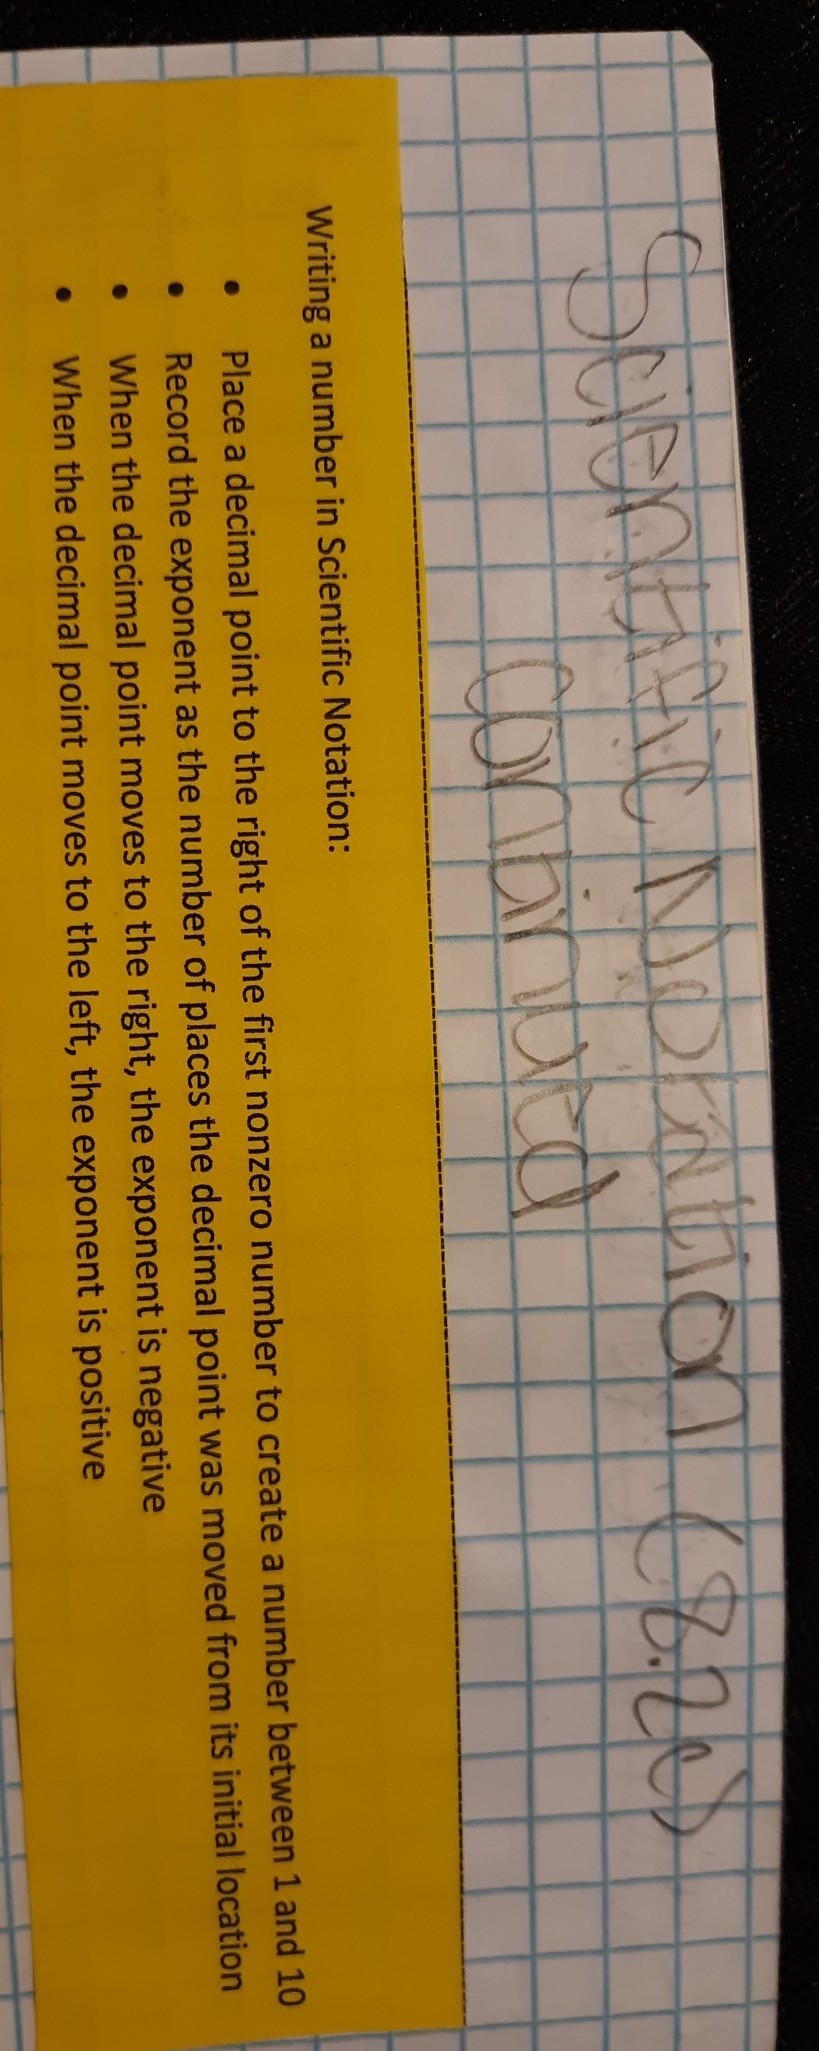 Scientific Notation (8.2c)
continued
Writing a number in Scientific Notation:
• Place a decimal point to the right of the first nonzero number to create a number between 1 and 10
• Record the exponent as the number of places the decimal point was moved from its initial location
• When the decimal point moves to the right, the exponent is negative
• When the decimal point moves to the left, the exponent is positive